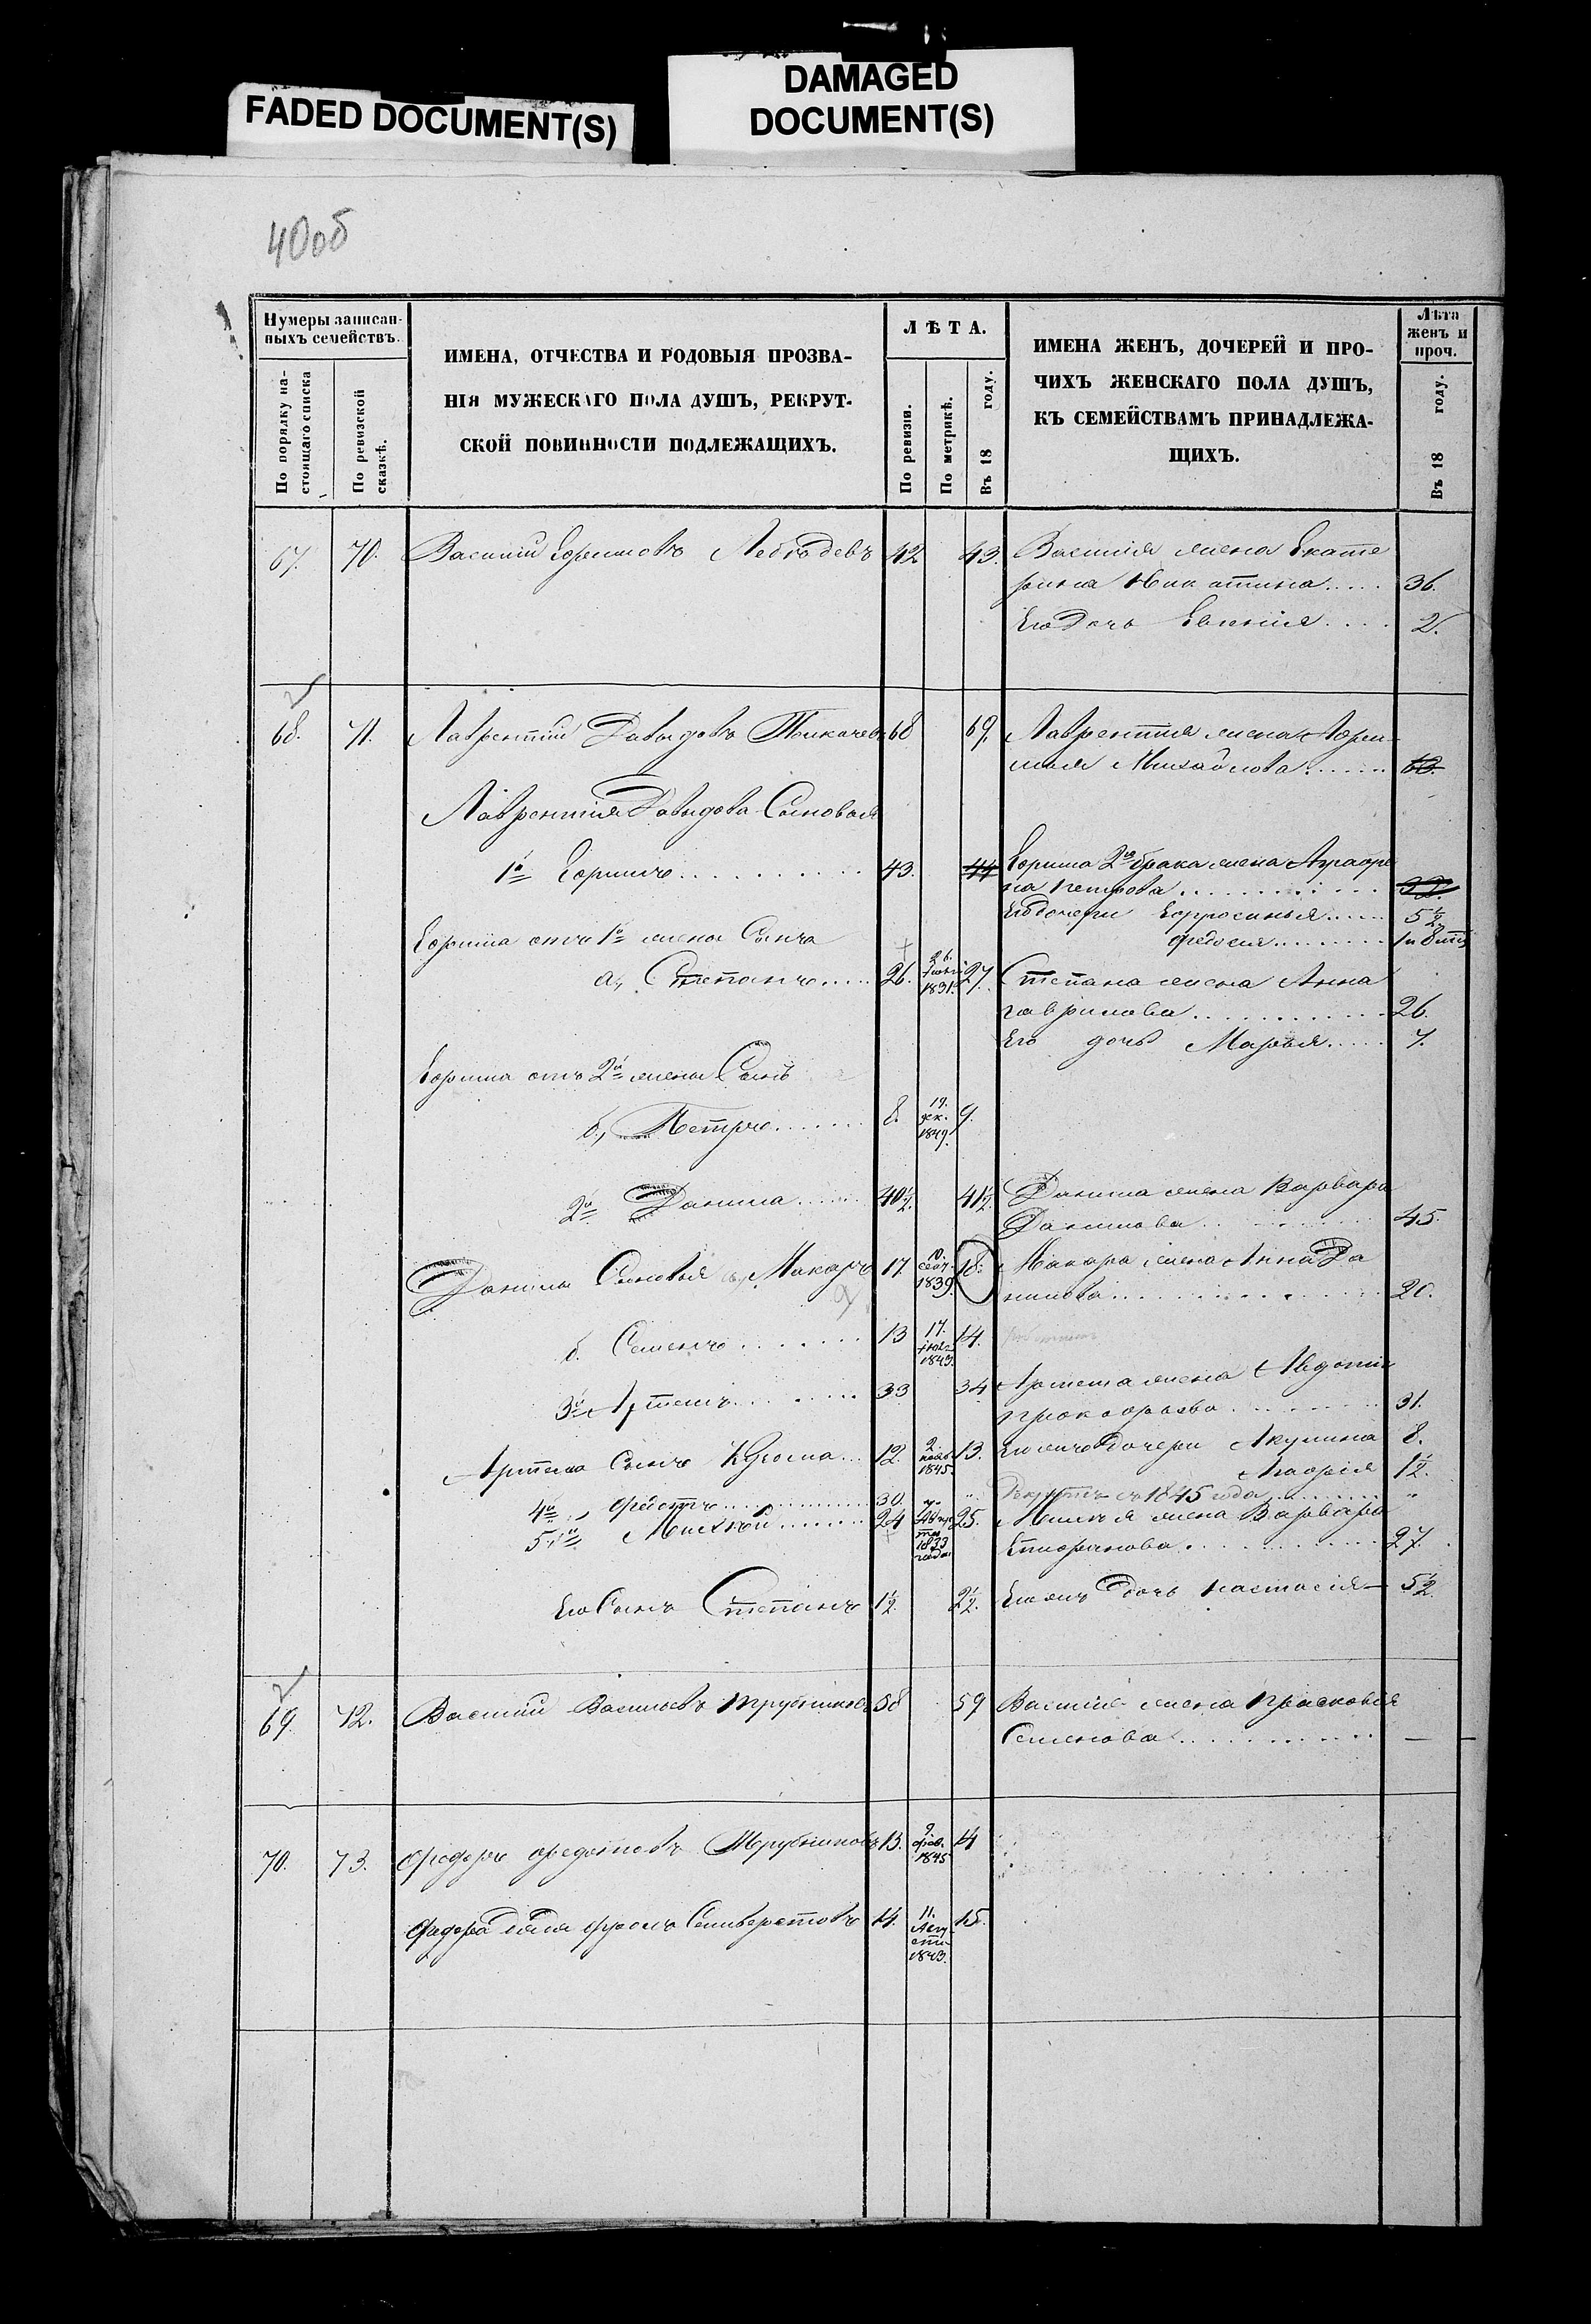 FADED DOCUMENT(S)
DAMAGED
DOCUMENT(S)
40об
Нумеры записан-
ныхъ семействъ.
По порядку на-
стоящаго списка
По ревизской
сказкѣ.
ИМЕНА, ОТЧЕСТВА И РОДОВЫЯ ПРОЗВА-
НІЯ МУЖЕСКАГО ПОЛА ДУШЪ, РЕКРУТ-
СКОЙ ПОВИННОСТИ ПОДЛЕЖАЩИХЪ.
ЛѢТА.
По ревизіи.
По метрикѣ.
Въ 18 году.
ИМЕНА ЖЕНЪ, ДОЧЕРЕЙ И ПРО-
ЧИХЪ ЖЕНСКАГО ПОЛА ДУШЪ,
КЪ СЕМЕЙСТВАМЪ ПРИНАДЛЕЖА-
ЩИХЪ.
Лѣта
женъ и
проч.
Въ 18 году.
67. 70. Василій Ефимовъ Лебѣдевъ 42 43. Василія жена Екате
рина Никитина..... 36.
Его Дочь Евгенія.... 2.
68. 71. Лаврентій Давыдовъ Толкачевъ 68 69. Лаврентія жена
Михайлова....... 68.
Лаврентія Давыдова Сыновья
1й Ефимъ.......... 43. 44 Ефима 2го брака жена Аграфе
на Петрова............
Его дочери Ефросинья..... 5½
Федосія.........
Ефима отъ 1й жены Сынъ
а, Степанъ..... 26. 26. 1831. 27. Степана жена Анна
Гаврилова............ 26.
Его дочь Марья..... 7.
Ефима отъ 2й жены Сынъ
б, Петръ....... 8. 19. дек. 1849. 9.
2й Данила...... 40½. 41½. Данила жена Варвара
Данилова......... 45.
Данилы Сыновья а, Макаръ 17 10. 1839. 18. Макара жена Анна Да
нилова............... 20.
б. Семенъ....... 13 17. іюля 1843. 14.
3й Артемъ........ 33 34 Артема жена Авдотья
Прокофьева........ 31.
Артема Сынъ Кузьма... 12. 2. нояб. 1845. 13. Его жъ Дочери Акулина 8.
Марфія 1½.
4й „ Федотъ............ 30. „ „ Рекрутъ съ 1845 года........ „
5й „ Михѣй....... 24 Авгу
ста
1833
года. 25. Михѣя жена Варвара
............ 27.
Его Сынъ Степанъ 1½. 2½. Его жъ Дочь Настасія— 5½
69. 72. Василій Васильевъ Трубниковъ 58 59 Василія жена Прасковья
Семенова........... —
70. 73. Федоръ Федотовъ Трубниковъ 13. 9. фев. 1845 14
Федора дядя Селиверстовъ 14. 11. Авгу
ста
1843. 15.